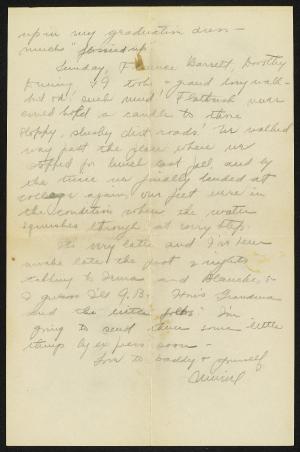 up in my graduation dress —
much "fussied up".
Sunday, Florence Barrett, Dorothy
and I took a grand long walk —
but oh, such mud! Flatbush never
could hold a candle to those
sloppy, slushy dirt roads! We walked
way past the place where we
stopped for lunch last fall, and by
the time we finally landed at
college again, our feet were in
the condition where the water
squishes through at every step.
It's very late and I've been
awake late the past 2 nights
talking to Irma and Blanche, so
I guess I'll G.B. How's Grandma
and the little folks? I'm
going to send them some little
things by express soon —
Love to Daddy & yourself